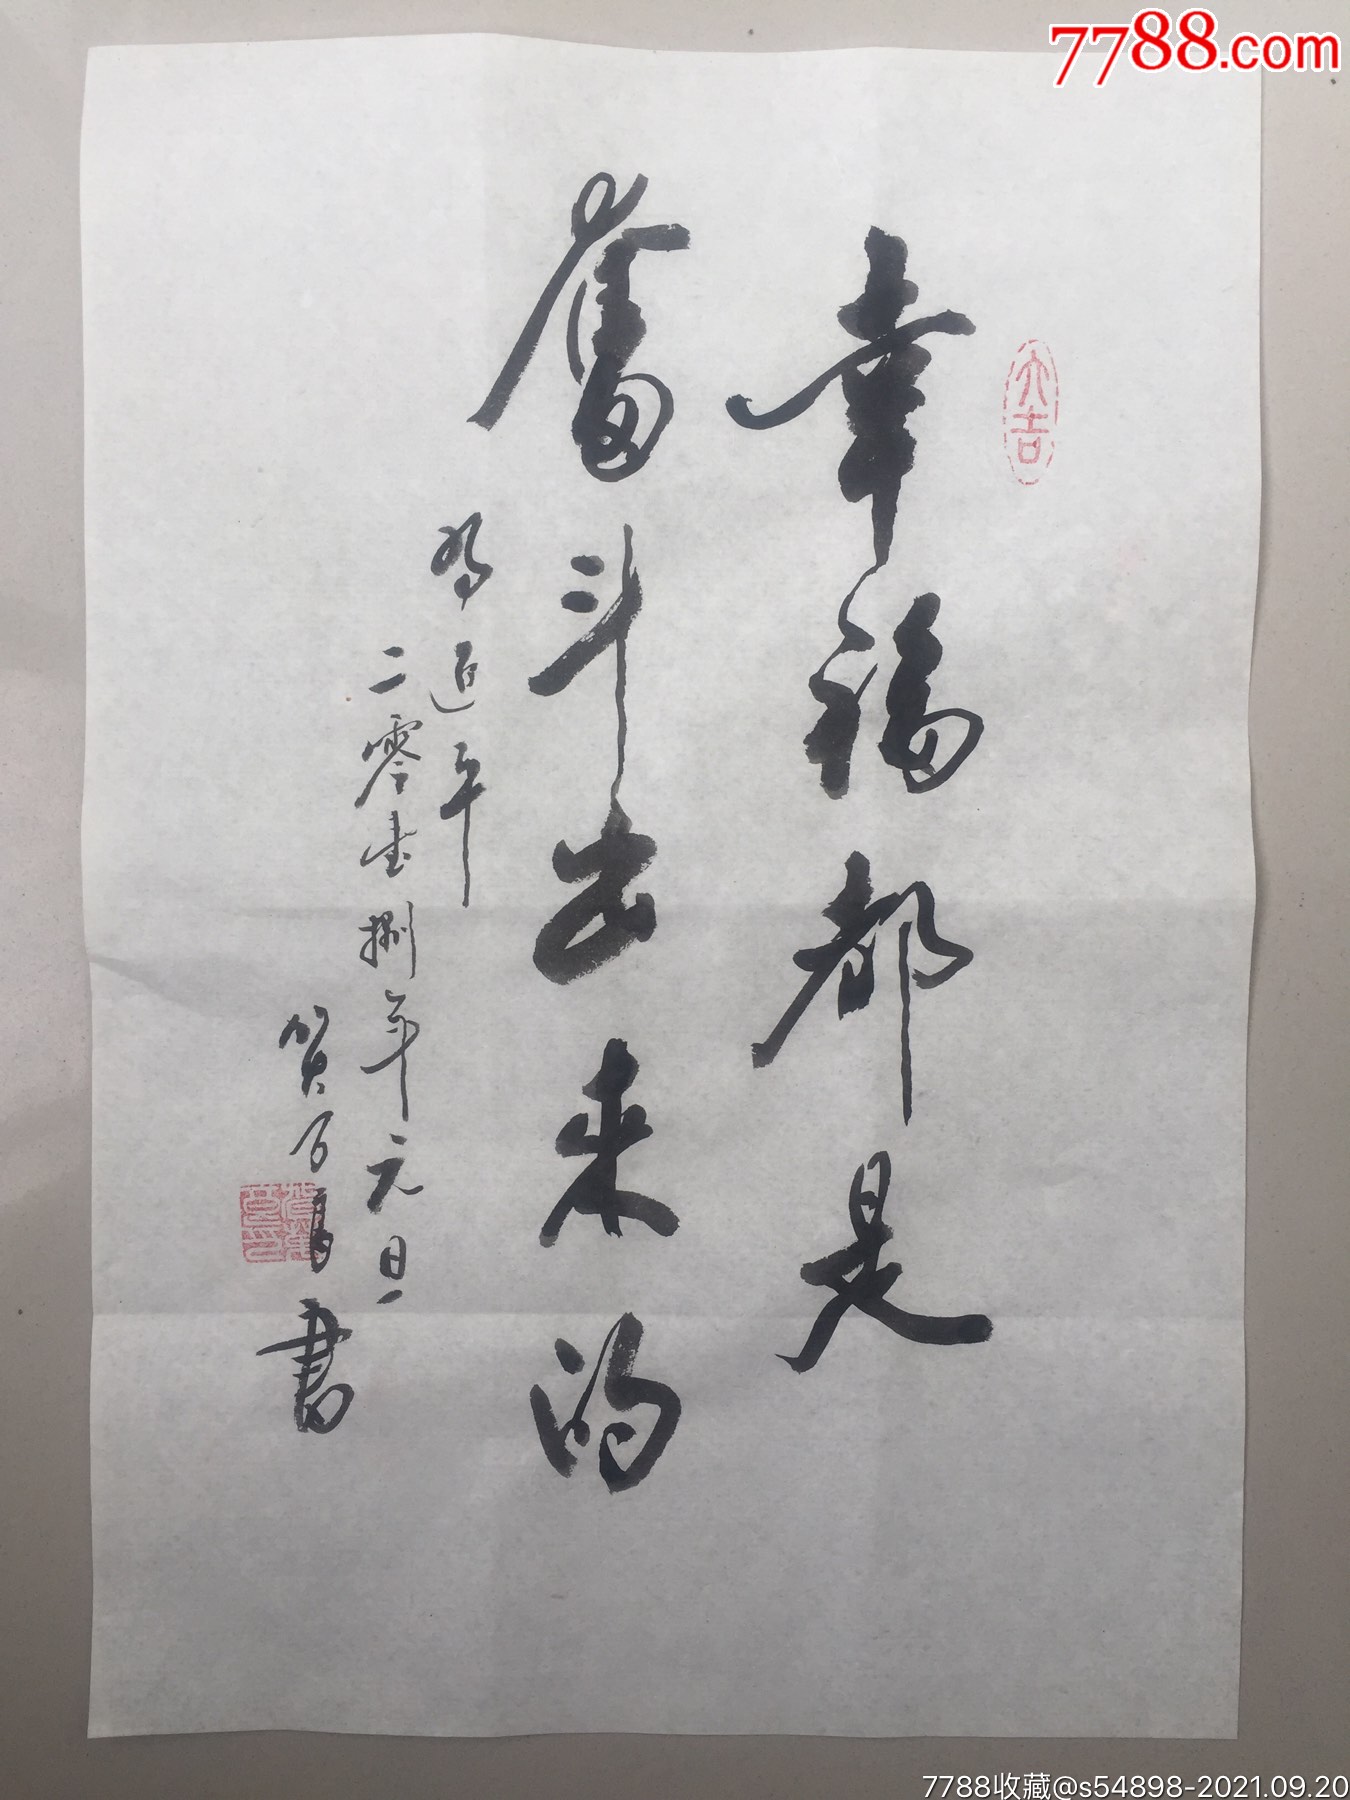 7788.com
大吉
幸福都是
奮斗出来的
为百年
二零壹捌年元旦
贺 书
7788收藏@s54898-2021.09.20